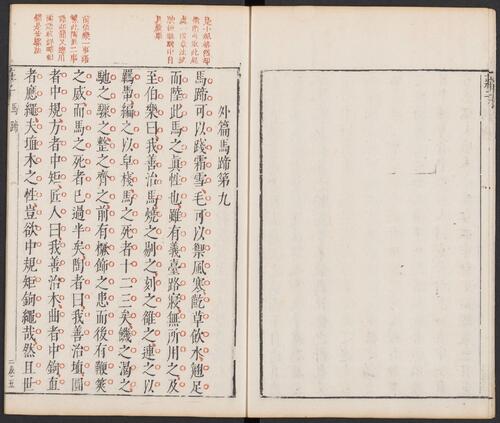 外篇馬蹄第九
馬蹄可以踐霜雪毛可以禦風寒齕草飲水翹足
而陸此馬之真性也雖有義臺路寢無所用之及
至伯樂曰我善治馬燒之剔之刻之雒之連之以
羈馽編之以皁棧馬之死者十二三矣饑之渴之
馳之驟之整之齊之前有橛飾之患而後有鞭筴
之威而馬之死者已過半矣陶者曰我善治埴圓
者中規方者中矩匠人曰我善治木曲者中鉤直
者應繩夫埴木之性豈欲中規矩鉤繩哉然且世
馬蹄